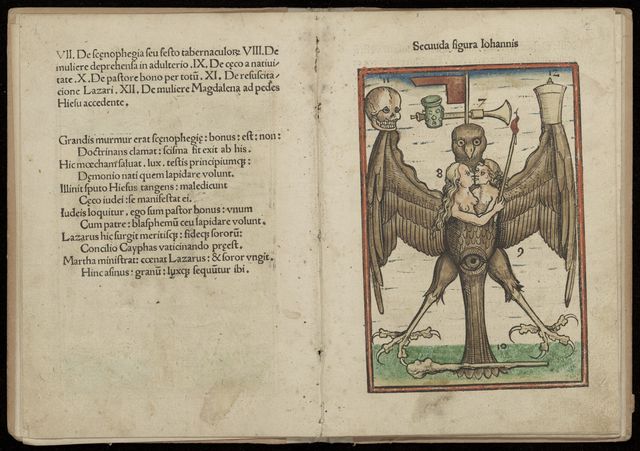 VII. De scęnophegia seu festo tabernaculorꝫ VIII. De
muliere deprehensa in adulterio. IX. De cęco a natiui-
tate. X. De pastore bono per totū. XI. De resuscita-
cione Lazari. XII. De muliere Magdalena ad pedes
Hiesu accedente.
Grandis murmur erat scęnophegię: bonus: est: non:
Doctrinans clamat: scisma fit exit ab his.
Hic mœcham saluat. lux. testis principiumq;:
Dęmonio nati quem lapidare volunt.
Illinit sputo Hiesus tangens: maledicunt
Cęco iudei: se manifestat ei.
Iudeis loquitur, ego sum pastor bonus: vnum
Cum patre: blasphemū ceu lapidare volunt.
Lazarus hic surgit meritisq;: fideq; sororū:
Concilio Cayphas vaticinando pręest.
Martha ministrat: cœnat Lazarus: & soror vngit.
Hinc asinus: granū: luxq; sequūtur ibi.
Secuuda figura Iohannis
11
7
12
8
9
10